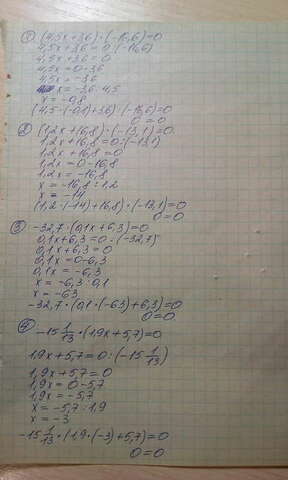 ① (4,5x+3,6)·(-16,6)=0
4,5x+3,6=0:(-16,6)
4,5x+3,6=0
4,5x=0-3,6
4,5x=-3,6
x=-3,6:4,5
x=-0,8
② (1,2x+16,8)·(-13,1)=0
1,2x+16,8=0:(-13,1)
1,2x+16,8=0
1,2x=0-16,8
1,2x=-16,8
x=-16,8:1,2
x=-14
(1,2·(-14)+16,8)·(-13,1)=0
0=0
③ -32,7·(0,1x+6,3)=0
0,1x+6,3=0:(-32,7)
0,1x+6,3=0
0,1x=0-6,3
0,1x=-6,3
x=-6,3:0,1
x=-63
-32,7·(0,1·(-63)+6,3)=0
0=0
④ -15 1/13·(1,9x+5,7)=0
1,9x+5,7=0:(-15 1/13)
1,9x+5,7=0
1,9x=0-5,7
1,9x=-5,7
x=-5,7:1,9
x=-3
-15 1/13·(1,9·(-3)+5,7)=0
0=0